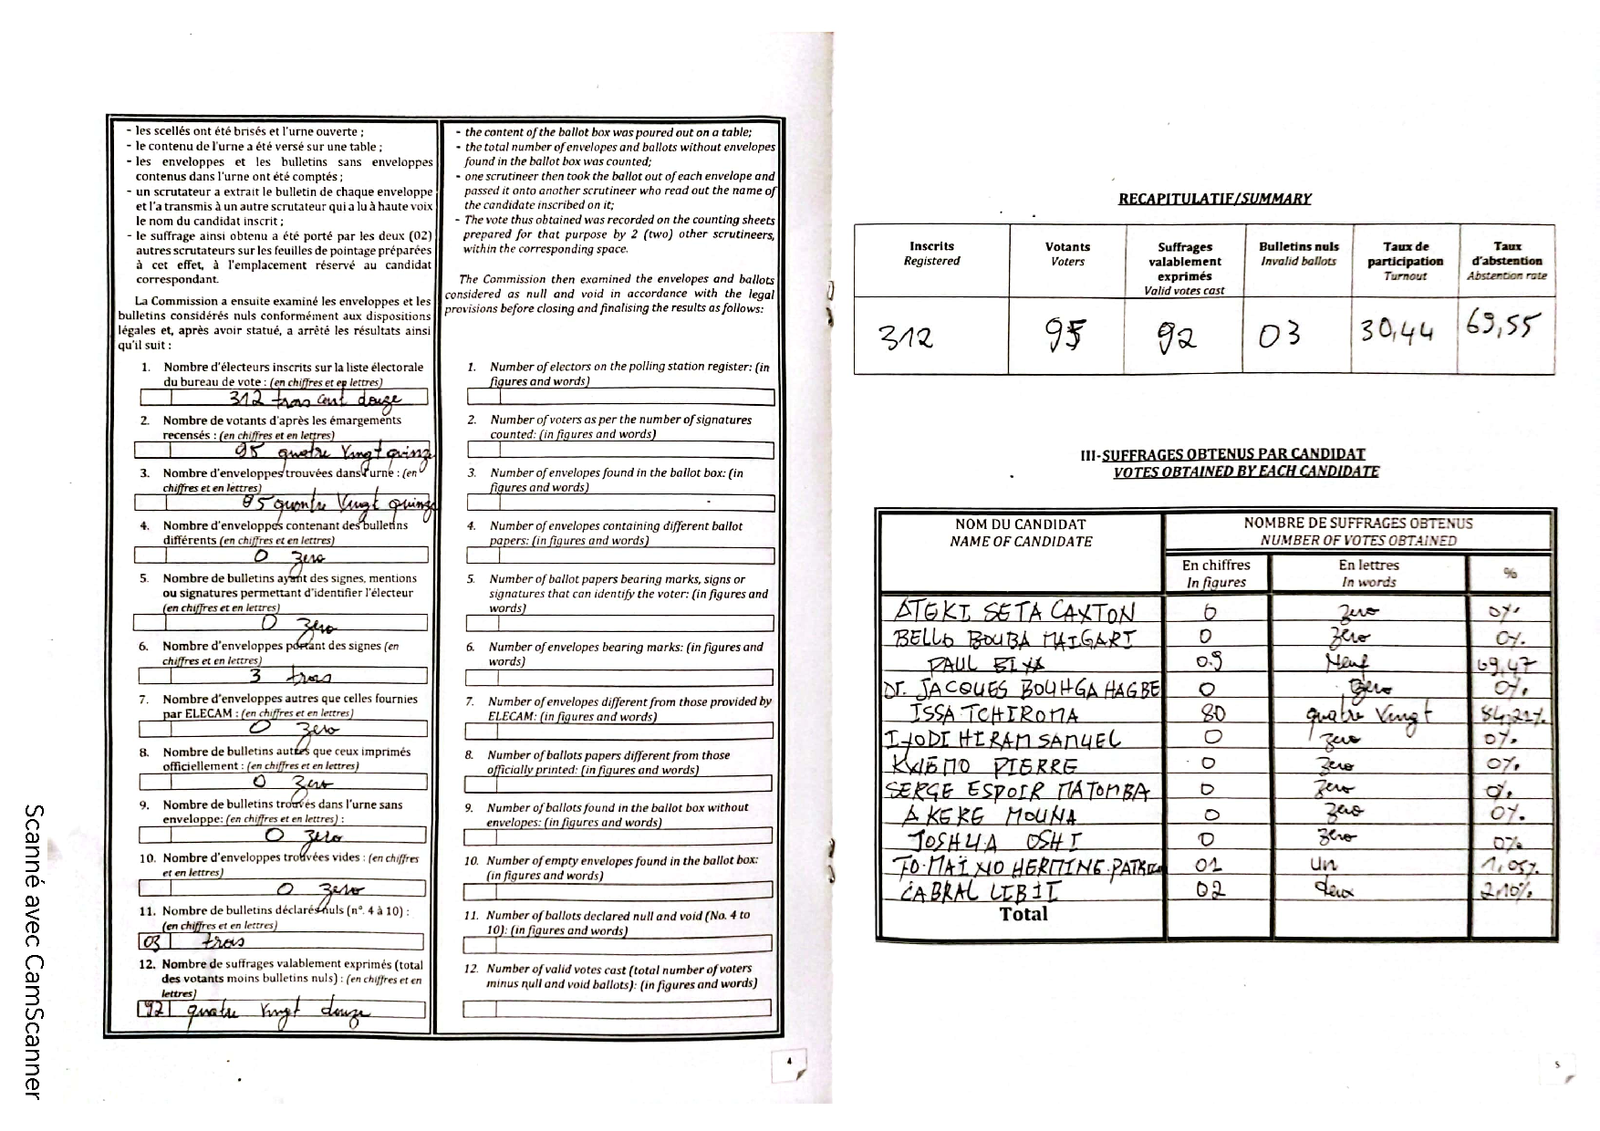 - les scellés ont été brisés et l'urne ouverte ;
- le contenu de l'urne a été versé sur une table ;
- les enveloppes et les bulletins sans enveloppes
contenus dans l'urne ont été comptés ;
- un scrutateur a extrait le bulletin de chaque enveloppe
et l'a transmis à un autre scrutateur qui a lu à haute voix
le nom du candidat inscrit ;
- le suffrage ainsi obtenu a été porté par les deux (02)
autres scrutateurs sur les feuilles de pointage préparées
à cet effet, à l'emplacement réservé au candidat
correspondant.
La Commission a ensuite examiné les enveloppes et les
bulletins considérés nuls conformément aux dispositions
légales et, après avoir statué, a arrêté les résultats ainsi
qu'il suit :
1. Nombre d'électeurs inscrits sur la liste électorale
du bureau de vote : (en chiffres et en lettres)
312 trois cent douze
2. Nombre de votants d'après les émargements
recensés : (en chiffres et en lettres)
95 quatre vingt quinze
3. Nombre d'enveloppes trouvées dans l'urne : (en
chiffres et en lettres)
95 quatre vingt quinze
4. Nombre d'enveloppes contenant des bulletins
différents (en chiffres et en lettres)
0 zero
5. Nombre de bulletins ayant des signes, mentions
ou signatures permettant d'identifier l'électeur
(en chiffres et en lettres)
0 zero
6. Nombre d'enveloppes portant des signes (en
chiffres et en lettres)
3 trois
7. Nombre d'enveloppes autres que celles fournies
par ELECAM : (en chiffres et en lettres)
0 zero
8. Nombre de bulletins autres que ceux imprimés
officiellement : (en chiffres et en lettres)
0 zero
9. Nombre de bulletins trouvés dans l'urne sans
enveloppe: (en chiffres et en lettres) :
0 zero
10. Nombre d'enveloppes trouvées vides : (en chiffres
et en lettres)
0 zero
11. Nombre de bulletins déclarés nuls (n°. 4 à 10) :
(en chiffres et en lettres)
03 trois
12. Nombre de suffrages valablement exprimés (total
des votants moins bulletins nuls) : (en chiffres et en
lettres)
92 quatre vingt douze
- the content of the ballot box was poured out on a table;
- the total number of envelopes and ballots without envelopes
found in the ballot box was counted;
- one scrutineer then took the ballot out of each envelope and
passed it onto another scrutineer who read out the name of
the candidate inscribed on it;
- The vote thus obtained was recorded on the counting sheets
prepared for that purpose by 2 (two) other scrutineers,
within the corresponding space.
The Commission then examined the envelopes and ballots
considered as null and void in accordance with the legal
provisions before closing and finalising the results as follows:
1. Number of electors on the polling station register: (in
figures and words)
2. Number of voters as per the number of signatures
counted: (in figures and words)
3. Number of envelopes found in the ballot box: (in
figures and words)
4. Number of envelopes containing different ballot
papers: (in figures and words)
5. Number of ballot papers bearing marks, signs or
signatures that can identify the voter: (in figures and
words)
6. Number of envelopes bearing marks: (in figures and
words)
7. Number of envelopes different from those provided by
ELECAM: (in figures and words)
8. Number of ballots papers different from those
officially printed: (in figures and words)
9. Number of ballots found in the ballot box without
envelopes: (in figures and words)
10. Number of empty envelopes found in the ballot box:
(in figures and words)
11. Number of ballots declared null and void (No. 4 to
10): (in figures and words)
12. Number of valid votes cast (total number of voters
minus null and void ballots): (in figures and words)
4
RECAPITULATIF/SUMMARY
Inscrits Registered | Votants Voters | Suffrages valablement exprimés Valid votes cast | Bulletins nuls Invalid ballots | Taux de participation Turnout | Taux d'abstention Abstention rate
312 95 92 03 30,44 69,55
III-SUFFRAGES OBTENUS PAR CANDIDAT
VOTES OBTAINED BY EACH CANDIDATE
NOM DU CANDIDAT NOMBRE DE SUFFRAGES OBTENUS
NAME OF CANDIDATE NUMBER OF VOTES OBTAINED
En chiffres En lettres %
In figures In words
ATEKI SETA CAXTON 0 zero 0%
BELLO BOUBA MAIGARI 0 zero 0%
PAUL BIYA 09 Neuf 69,47
Dr. JACQUES BOUHGA HAGBE 0 zero 0%
ISSA TCHIROMA 80 quatre vingt 84,21%
IYODI HIRAM SAMUEL 0 zero 0%
KWEMO PIERRE 0 zero 0%
SERGE ESPOIR MATOMBA 0 zero 0%
AKERE MOUNA 0 zero 0%
JOSHUA OSHI 0 zero 0%
TO.MAÏNO HERMINE.PATRI 01 un 1,05%
CABRAL LIBII 02 deux 2,10%
Total
5
Scanné avec CamScanner